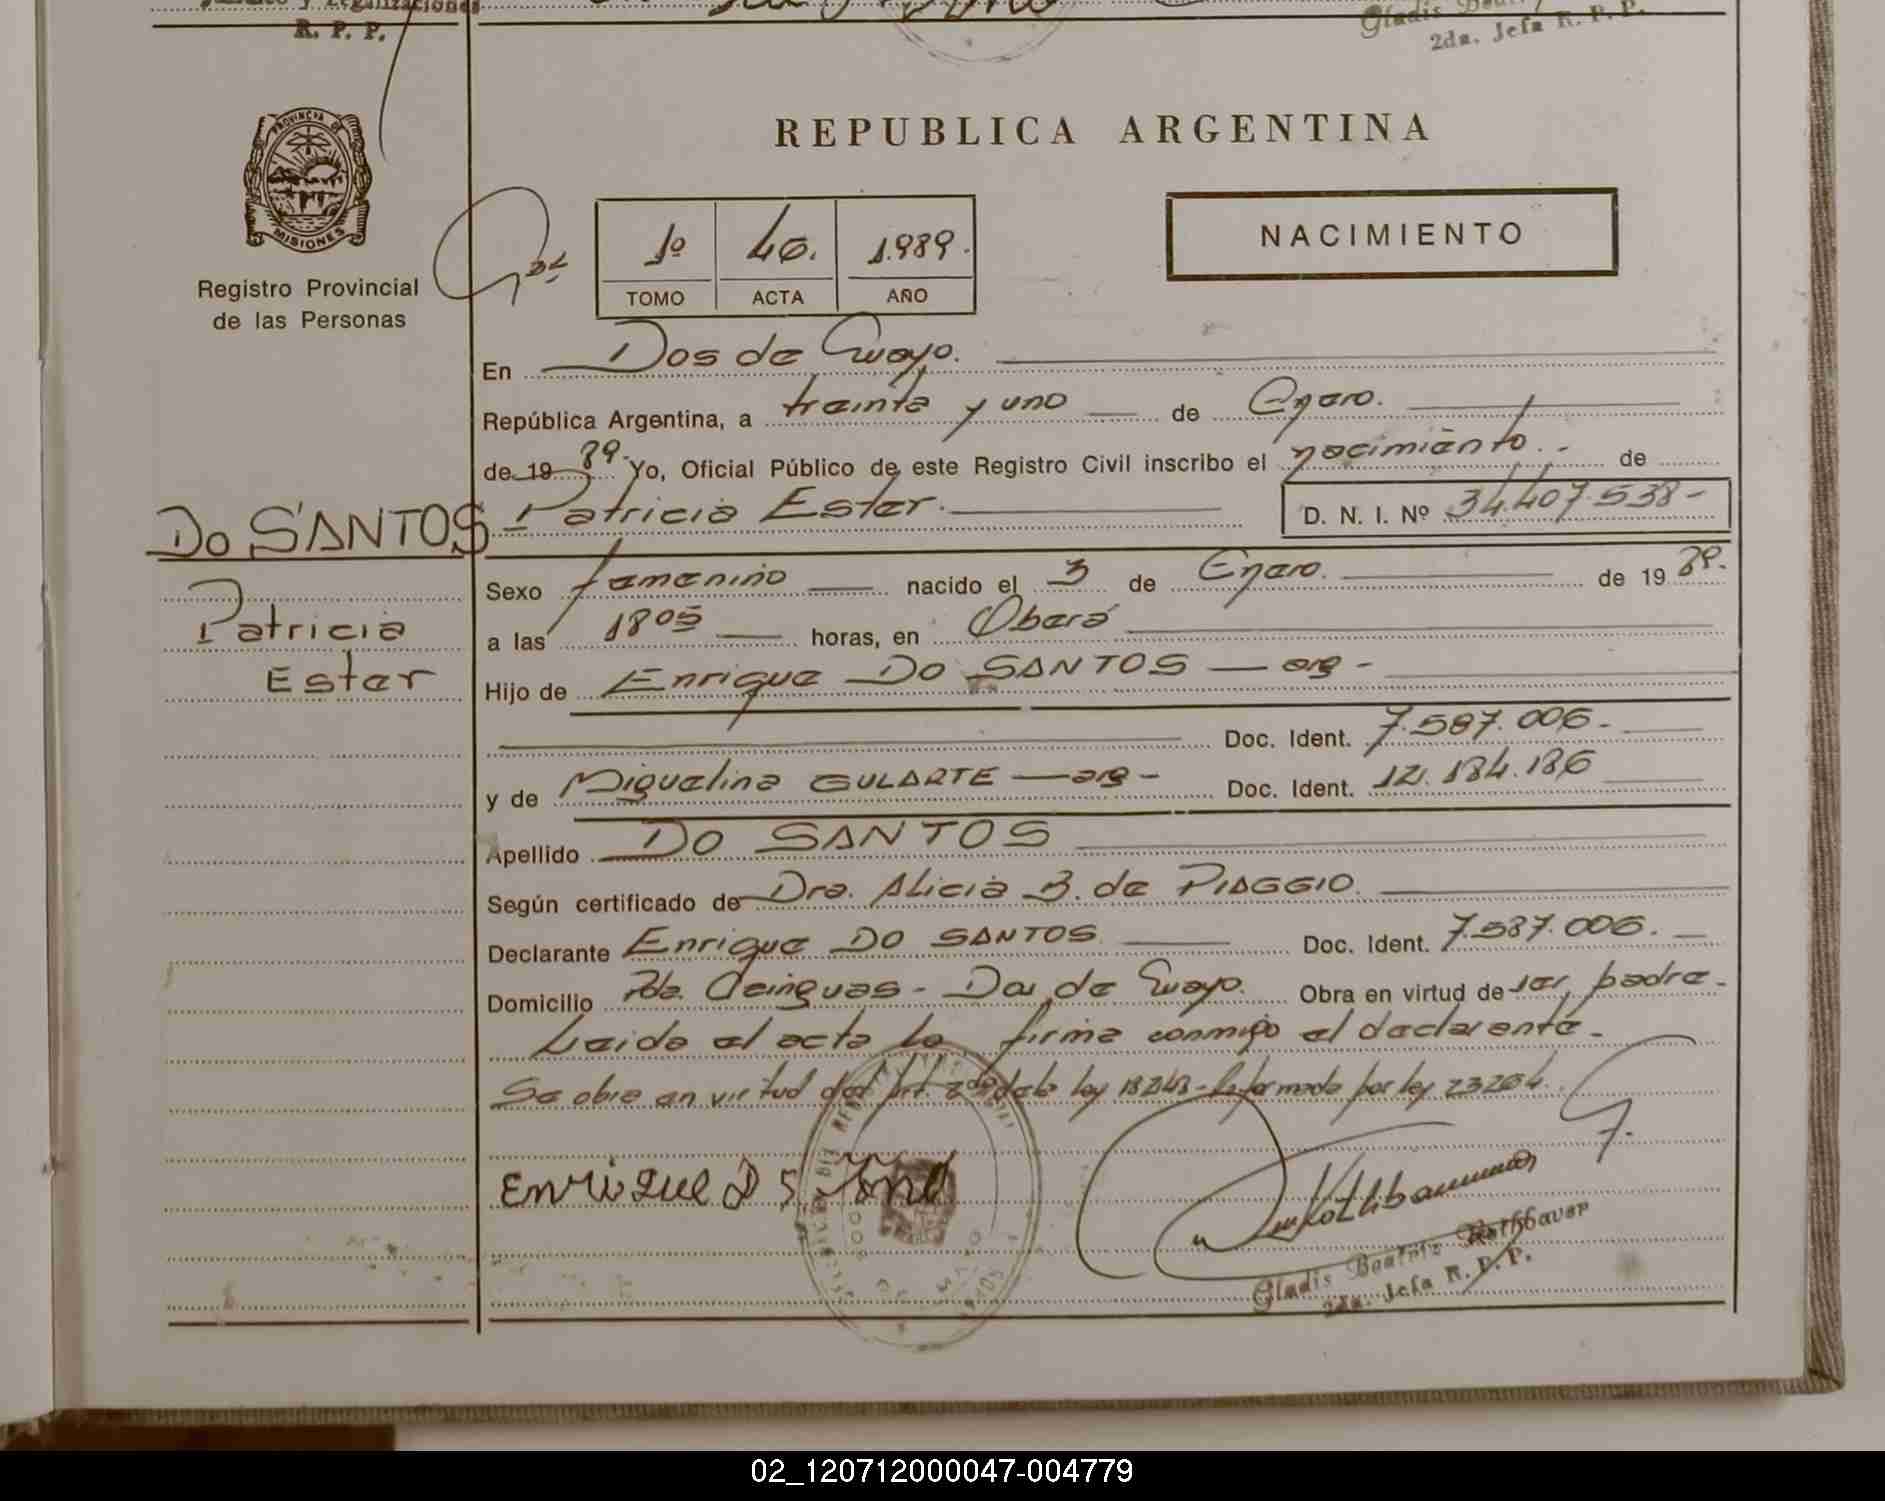 y Legalizaciones
R. P. P.
Gladis
2da. Jefa R. P. P.
PROVINCIA DE
MISIONES
Registro Provincial
de las Personas
REPUBLICA ARGENTINA
1º 40. 1.989.
TOMO ACTA AÑO
NACIMIENTO
En Dos de Mayo.
República Argentina, a treinta y uno de Enero.
de 19 89. Yo, Oficial Público de este Registro Civil inscribo el nacimiento.- de
DO SANTOS Patricia Ester. D. N. I. Nº 34.407.538-
Patricia
Ester
Sexo femenino nacido el 3 de Enero. de 19 89.
a las 18 05 horas, en Oberá
Hijo de Enrique DO SANTOS — arg -
Doc. Ident. 7.587.006.-
y de Miguelina GULARTE — arg - Doc. Ident. 12.184.186
Apellido DO SANTOS
Según certificado de Dra. Alicia B. de PIAGGIO.
Declarante Enrique DO SANTOS Doc. Ident. 7.587.006. -
Domicilio Pda. Ceinguas - Dos de Mayo. Obra en virtud de ser padre.-
Leida el acta la firma conmigo el declarante.-
Se obra en virtud del Art. 2do de la ley 18248- Reformada por ley 23264.
Enrique D Santo
Gladis Beatriz Rothbauer
2da. Jefa R. P. P.
02_120712000047-004779